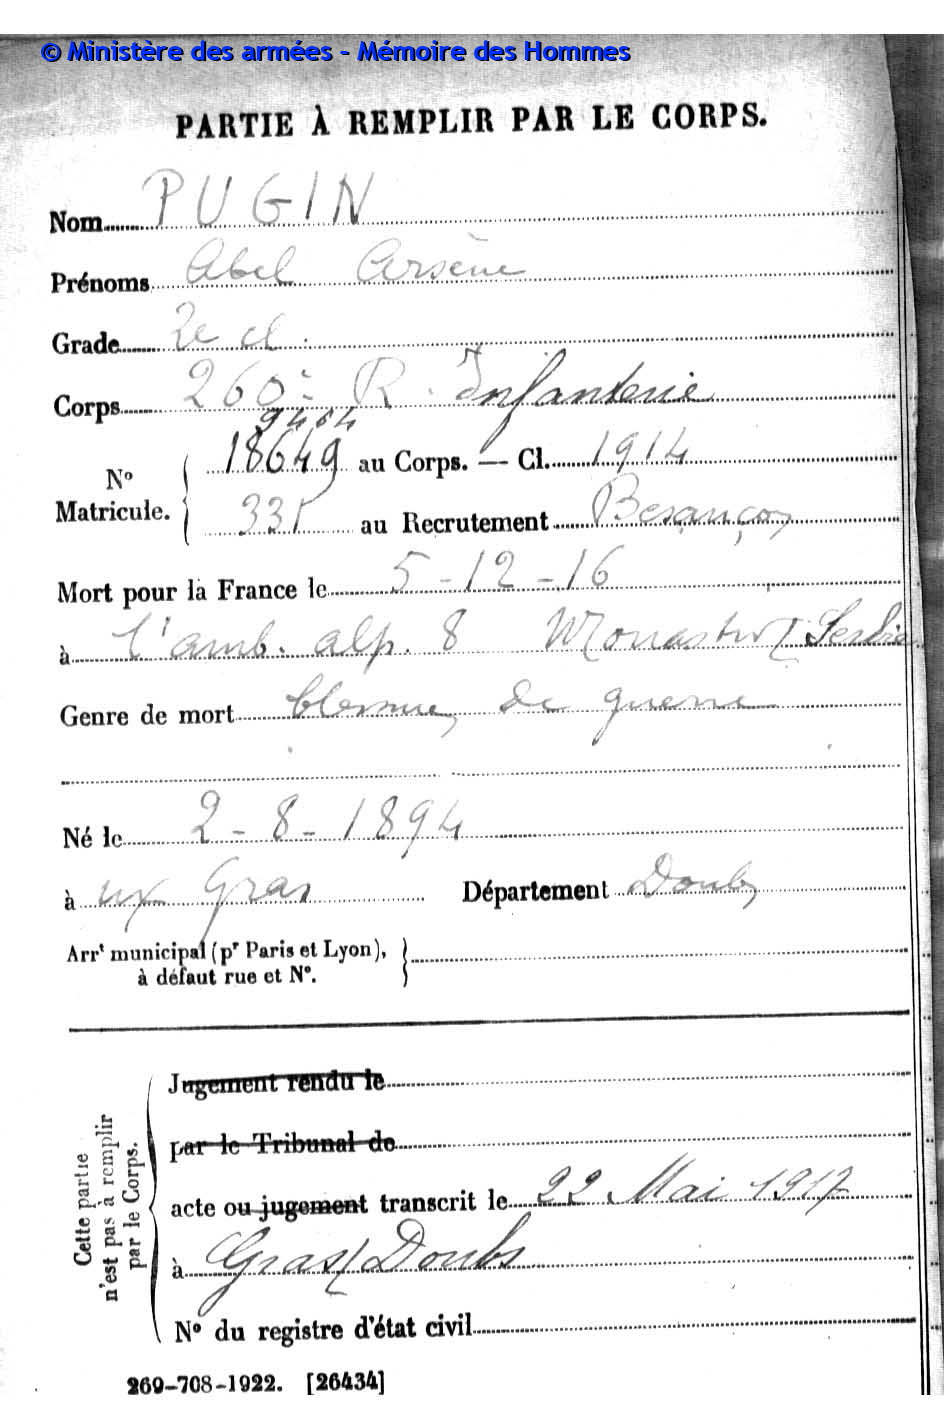 © Ministère des armées - Mémoire des Hommes
PARTIE À REMPLIR PAR LE CORPS.
Nom PUGIN
Prénoms Abel Arsène
Grade 2e cl.
Corps 260e R. Infanterie
9464
N° Matricule. 18649 au Corps. — Cl. 1914
335 au Recrutement Besançon
Mort pour la France le 5-12-16
à l'amb. alp. 8 Monastir (Serbie
Genre de mort blessures de guerre
Né le 2-8-1894
à ux Gras Département Doubs
Arrt municipal (pr Paris et Lyon),
à défaut rue et N°.
Cette partie
n'est pas à remplir
par le Corps.
Jugement rendu le
par le Tribunal de
acte ou jugement transcrit le 22 Mai 1917
à Gras/Doubs
N° du registre d'état civil
269-708-1922. [26434]